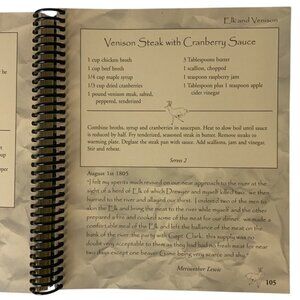 Elk and Venison
Venison Steak with Cranberry Sauce
1 cup chicken broth
1 cup beef broth
1/4 cup maple syrup
1/3 cup dried cranberries
1 pound venison steak, salted,
peppered, tenderized
3 Tablespoons butter
1 scallion, chopped
1 teaspoon raspberry jam
1 Tablespoon plus 1 teaspoon apple
cider vinegar
Combine broths, syrup and cranberries in saucepan. Heat to slow boil until sauce
is reduced by half. Fry tenderized, seasoned steak in butter. Remove steaks to
warming plate. Deglaze the steak pan with sauce. Add scallions, jam and vinegar.
Stir and reheat.
Serves 2
August 1st 1805
"I felt my spirits much revived on our near approach to the river at the
sight of a herd of Elk of which Drewyer and myself killed two. we then
hurried to the river and allayed our thirst. I ordered two of the men to
skin the Elk and bring the meat to the river while myself and the other
prepared a fire and cooked some of the meat for our dinner. we made a
comfortable meal of the Elk and left the ballance of the meat on the
bank of the river the party with Capt. Clark. this supply was no
doubt very acceptable to them as they had had no fresh meat for near
two days except one beaver Game being very scarce and shy."
Meriwether Lewis
105